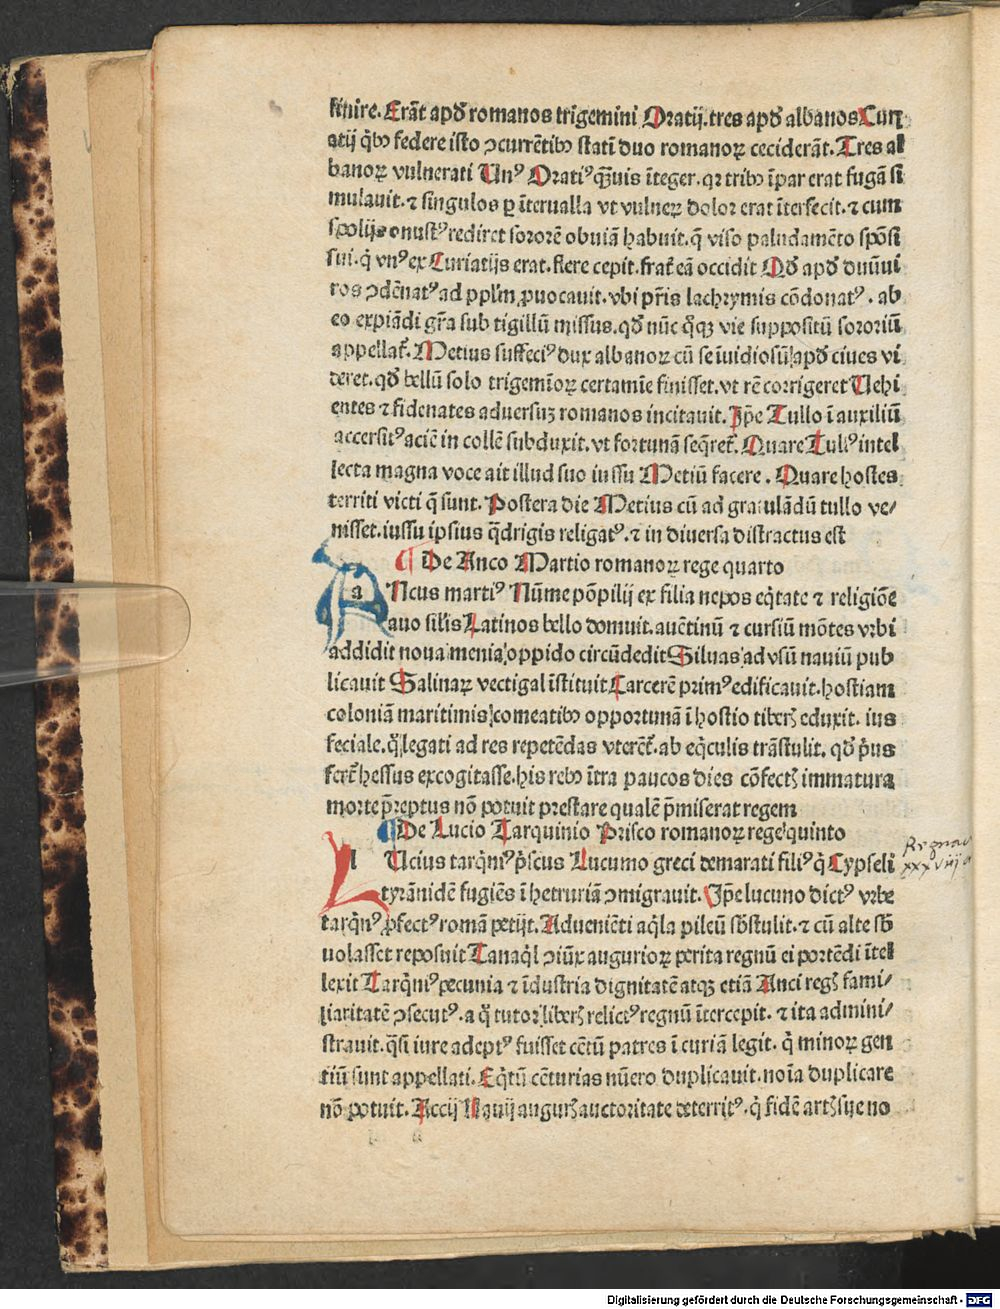 finire. Erāt apd̄ romanos trigemini Oratij. tres apd̄ albanos Curi
atij q̄bꝰ federe isto ꝯcurrētibꝰ statī duo romanoꝝ ceciderāt. Tres al
banoꝝ vulnerati Unꝰ Oratiꝰ qꝫuis īteger. qꝛ tribꝰ īpar erat fugā si
mulauit. ⁊ singulos ꝑ īterualla vt vulneꝝ dolor erat īterfecit. ⁊ cum
spolijs onustꝰ rediret sororē obuiā habuit. q̄ viso paludamēto spōsi
sui. q̇ vnꝰ ex Curiatijs erat. flere cepit. frat̄ eā occidit Qd̄ apd̄ duūui
ros ꝯdēnatꝰ ad pplm̄ ꝓuocauit. vbi pr̄is lachrymis cōdonatꝰ. ab
eo expiādi gr̄a sub tigillū missus. qd̄ nūc q̄qꝫ vie suppositū sororiū
appellat̄. Metius suffeciꝰ dux albanoꝝ cū se īuidiosū apd̄ ciues vi
deret. qd̄ bellū solo trigemīoꝝ certamīe finisset. vt rē corrigeret Uehi
entes ⁊ fidenates aduersuꝫ romanos incitauit. Jp̄e Tullo ī auxiliū
accersitꝰ aciē in collē subduxit. vt fortunā seq̄ret̄. Quare Tulꝰ intel
lecta magna voce ait illud suo iussu Metiū facere. Quare hostes
territi victi q̄ sunt. Postera die Metius cū ad gratulādū tullo ve/
nisset. iussu ipsius q̄drigis religatꝰ. ⁊ in diuersa distractus est
¶ De Anco Martio romanoꝝ rege quarto
aNcus martiꝰ Nūme pōpilij ex filia nepos eq̇tate ⁊ religiōe
auo silis Latinos bello domuit. auētinū ⁊ cursiū mōtes vrbi
addidit noua menia oppido circūdedit Siluas ad vsū nauiū pub
licauit Salinaꝝ vectigal īstituit Carcerē primꝰ edificauit. hostiam
coloniā maritimis comeatibꝰ opportunā ī hostio tiberꝭ eduxit. ius
feciale. q̇ legati ad res repetēdas vterēt̄. ab eq̇culis trāstulit. qd̄ p̄us
fert̄ hessus excogitasse. his rebꝰ ītra paucos dies cōfectꝭ immatura
morte p̄reptus nō potuit prestare qualē p̄miserat regem
¶ De Lucio Tarquinio Prisco romanoꝝ rege quinto
lUcius tarq̇nꝰ p̄scus Lucumo greci demarati filiꝰ q̇ Cypseli
tyrānidē fugiēs ī hetruriā ꝯmigrauit. Jp̄e lucuno dictꝰ vrbe
tarq̇nꝰ ꝓfectꝰ romā petijt. Aduenīeti aq̇la pileū sb̄stulit. ⁊ cū alte sb̄
uolasset reposuit Tanaq̇l ꝯiūx auguriorꝝ perita regnū ei portēdi ītel
lexit Tarq̇nꝰ pecunia ⁊ īdustria dignitatē atqꝫ etiā Anci regꝭ fami/
liaritatē ꝯsecutꝰ. a q̊ tutor liberꝭ relictꝰ regnū ītercepit. ⁊ ita admini/
strauit. q̄si iure adeptꝰ fuisset cētū patres ī curiā legit. q̇ minoꝝ gen
tiū sunt appellati. Eq̇tū cēturias nūero duplicauit. noīa duplicare
nō potuit. Accij Nauij augurꝭ auctoritate deterritꝰ. q̇ fidē artꝭ sue no
Regnau
xxxviij a
Digitalisierung gefördert durch die Deutsche Forschungsgemeinschaft - DFG